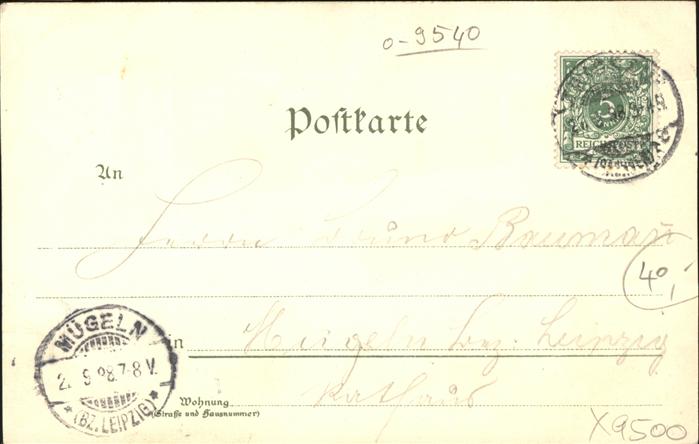 0-9540
5
REICHSPOST
Postkarte
An
Herrn Bruno Bauman
40,
in Mügeln bez. Leipzig
Rathaus
MÜGELN
2. 9 98. 7-8 V.
* (BZ. LEIPZIG) *
Wohnung
(Straße und Hausnummer)
X9500